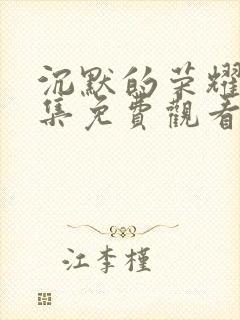 沉默的荣耀
集免費觀看
江李槿